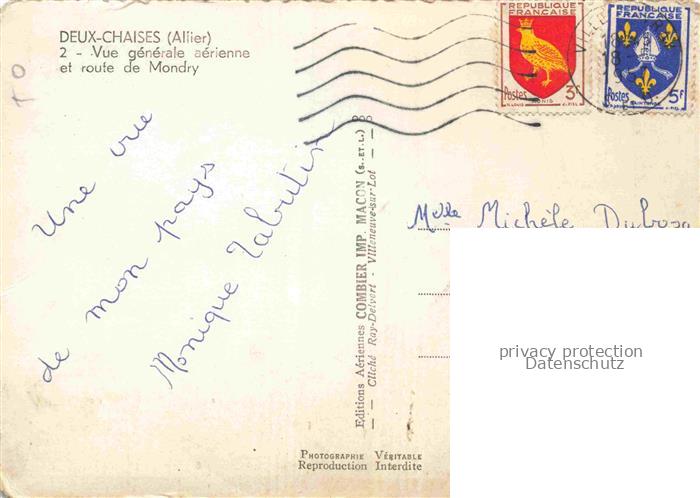 DEUX-CHAISES (Allier)
2 - Vue générale aérienne
et route de Mondry
Une vue
de mon pays
Monique Tabutin
Editions Aériennes COMBIER IMP. MACON (S.-ET-L.)
Cliché Ray-Delvert - Villeneuve-sur-Lot
PHOTOGRAPHIE VÉRITABLE
Reproduction Interdite
REPUBLIQUE
FRANÇAISE
Postes 3F
AUNIS
REPUBLIQUE
FRANÇAISE
Postes 5F
SAINTONGE
Melle Michèle
privacy protection
Datenschutz